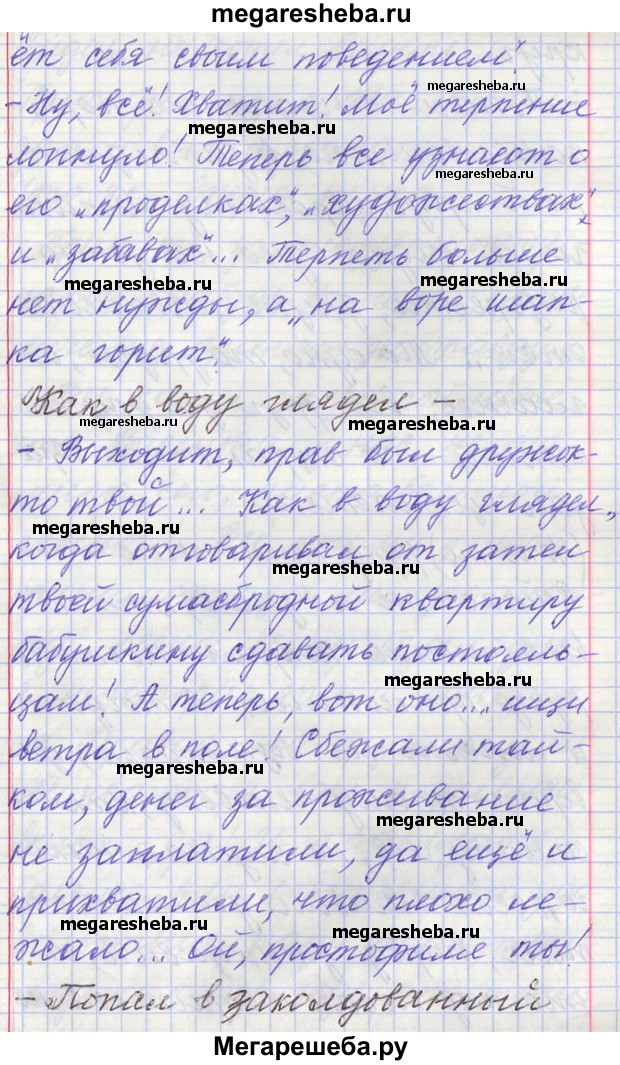 megaresheba.ru
ёт себя своим поведением".
megaresheba.ru
- Ну, всё! Хватит! Моё терпение
megaresheba.ru
лопнуло! Теперь все узнают о
megaresheba.ru
его „проделках", „художествах"
и „забавах"... Терпеть больше
megaresheba.ru
megaresheba.ru
нет нужды, а „на воре шап-
ка горит".
Как в воду глядел –
megaresheba.ru
- Выходит, прав был дружок-
megaresheba.ru
то твой... Как в воду глядел,
megaresheba.ru
когда отговаривал от затеи
megaresheba.ru
твоей сумасбродной квартиру
бабушкину сдавать постояль-
megaresheba.ru
цам! А теперь, вот оно... ищи
ветра в поле! Сбежали тай-
megaresheba.ru
ком, денег за проживание
megaresheba.ru
не заплатили, да ещё и
прихватили, что плохо ле-
megaresheba.ru
megaresheba.ru
жало... Ой, простофиля ты!
- Попал в заколдованный
Мегарешеба.ру